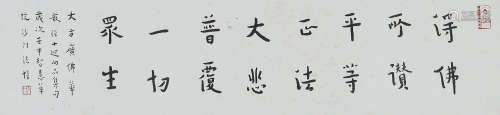 淂佛
所讚
平等
正法
大悲
普覆
一切
眾生
大方廣佛華
嚴經十迴向品集句